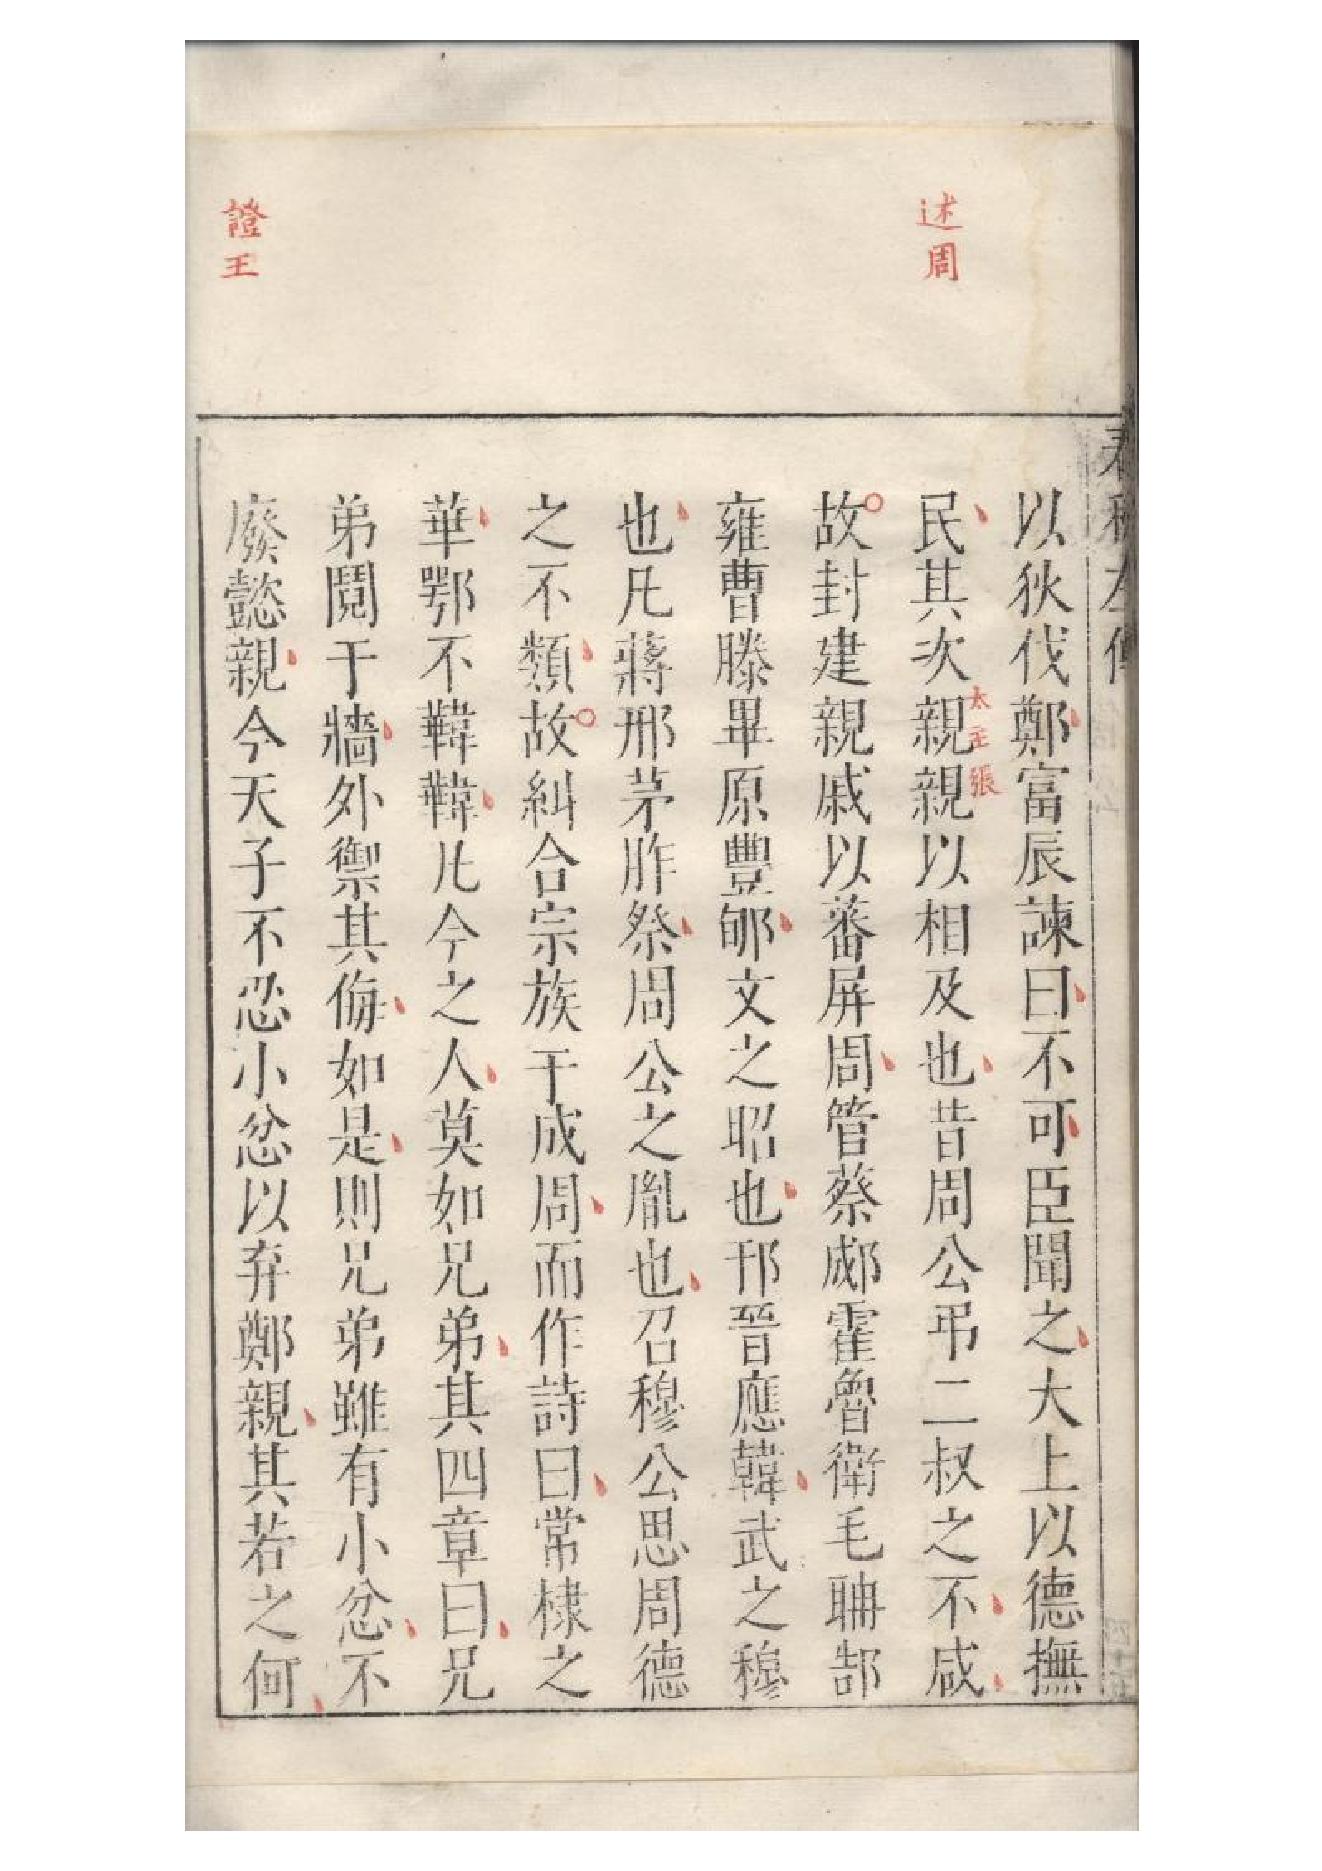 春秋左傳
述周
證王
以狄伐鄭富辰諫曰不可臣聞之大上以德撫
民其次親親以相及也昔周公弔二叔之不咸
太主張
故封建親戚以蕃屏周管蔡郕霍魯衛毛聃郜
雍曹滕畢原豐郇文之昭也邘晉應韓武之穆
也凡蔣邢茅胙祭周公之胤也召穆公思周德
之不類故糾合宗族于成周而作詩曰常棣之
華鄂不韡韡凡今之人莫如兄弟其四章曰兄
弟鬩于牆外禦其侮如是則兄弟雖有小忿不
廢懿親今天子不忍小忿以弃鄭親其若之何